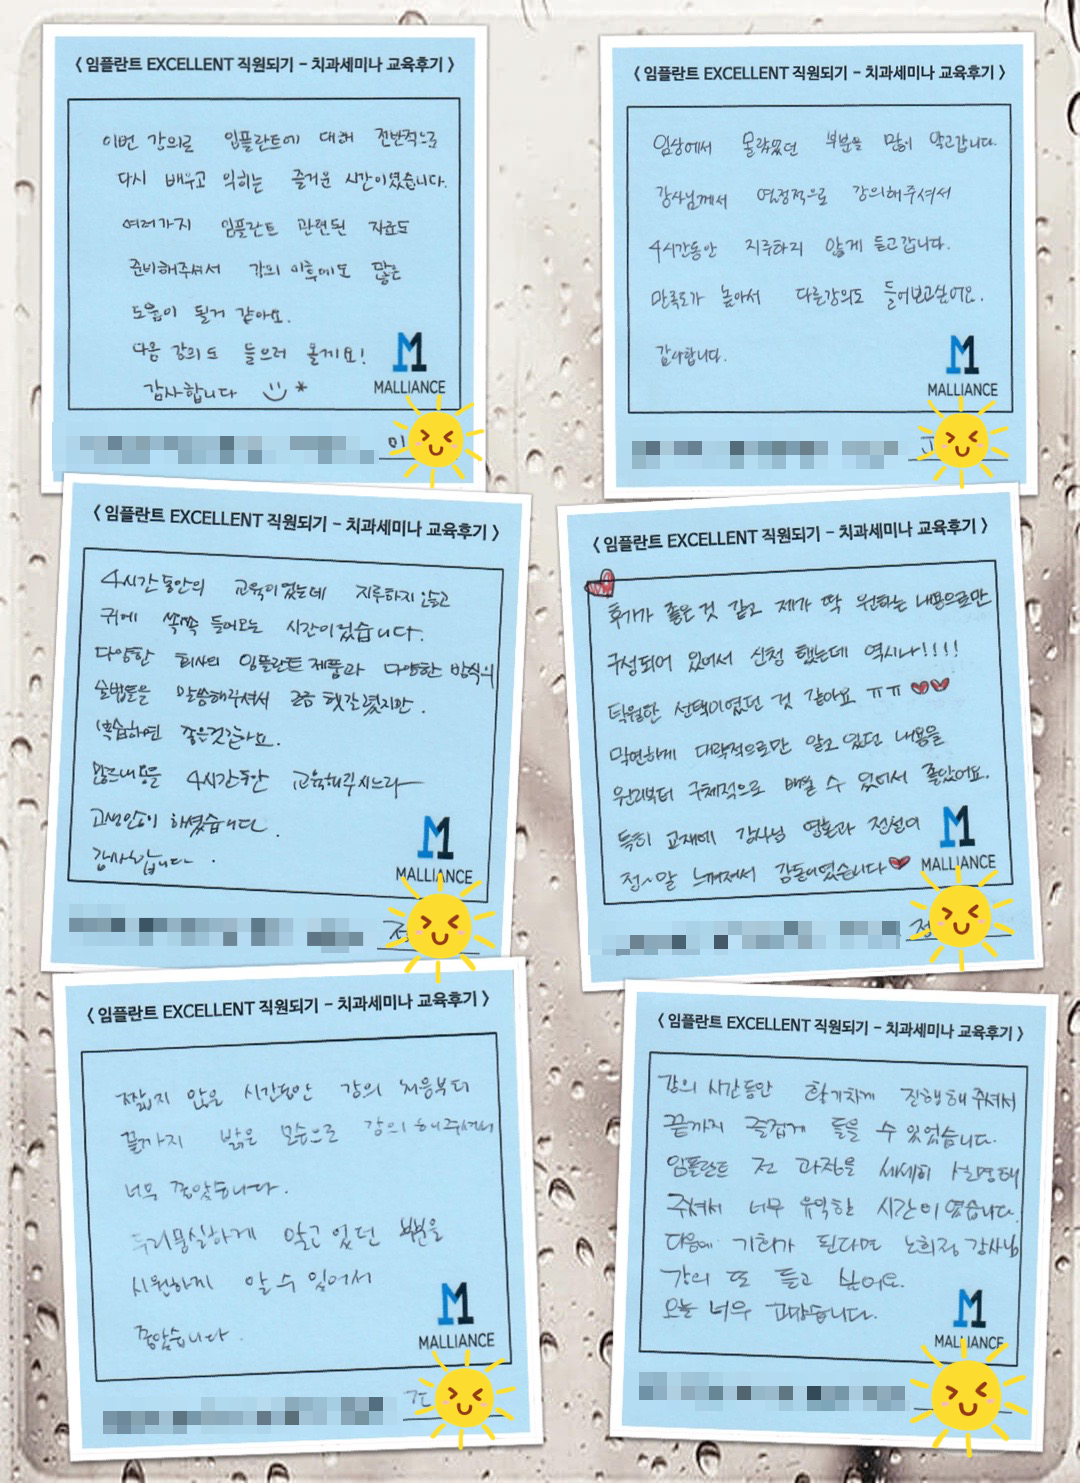 < 임플란트 EXCELLENT 직원되기 - 치과세미나 교육후기 >
이번 강의로 임플란트에 대해 전반적으로
다시 배우고 익히는 즐거운 시간이였습니다.
여러가지 임플란트 관련된 자료도
준비해주셔서 강의 이후에도 많은
도움이 될거 같아요.
다음 강의도 들으러 올게요!
감사합니다
MALLIANCE
< 임플란트 EXCELLENT 직원되기 - 치과세미나 교육후기 >
임상에서 몰랐었던 부분을 많이 알고갑니다.
강사님께서 열정적으로 강의해주셔서
4시간동안 지루하지 않게 듣고갑니다.
만족도가 높아서 다른강의도 들어보고싶어요.
감사합니다.
MALLIANCE
< 임플란트 EXCELLENT 직원되기 - 치과세미나 교육후기 >
4시간동안의 교육이였는데 지루하지않고
귀에 쏙쏙 들어오는 시간이였습니다.
다양한 회사의 임플란트 제품과 다양한 방식의
술법들을 말씀해주셔서 조금 헷갈렸지만.
복습하면 좋은것같아요.
많은내용을 4시간동안 교육해주시느라
고생많이 하셨습니다.
감사합니다.
MALLIANCE
< 임플란트 EXCELLENT 직원되기 - 치과세미나 교육후기 >
후기가 좋은 것 같고 제가 딱 원하는 내용으로만
구성되어 있어서 신청 했는데 역시나!!!!
탁월한 선택이였던 것 같아요 ㅠㅠ
막연하게 대략적으로만 알고 있던 내용을
원리부터 구체적으로 배울 수 있어서 좋았어요.
특히 교재에 강사님 영혼과 전설이
정~말 느껴져서 감동이였습니다
MALLIANCE
정
< 임플란트 EXCELLENT 직원되기 - 치과세미나 교육후기 >
짧지 않은 시간동안 강의 처음부터
끝까지 밝은 모습으로 강의 해주셔서
너무 좋았습니다.
두리뭉실하게 알고 있던 부분을
시원하게 알 수 있어서
좋았습니다.
MALLIANCE
< 임플란트 EXCELLENT 직원되기 - 치과세미나 교육후기 >
강의 시간동안 활기차게 진행해 주셔서
끝까지 즐겁게 들을 수 있었습니다.
임플란트 전 과정을 세세히 설명해
주셔서 너무 유익한 시간이였습니다.
다음에 기회가 된다면 노희정 강사님
강의 또 듣고 싶어요.
오늘 너무 고마웠습니다.
MALLIANCE